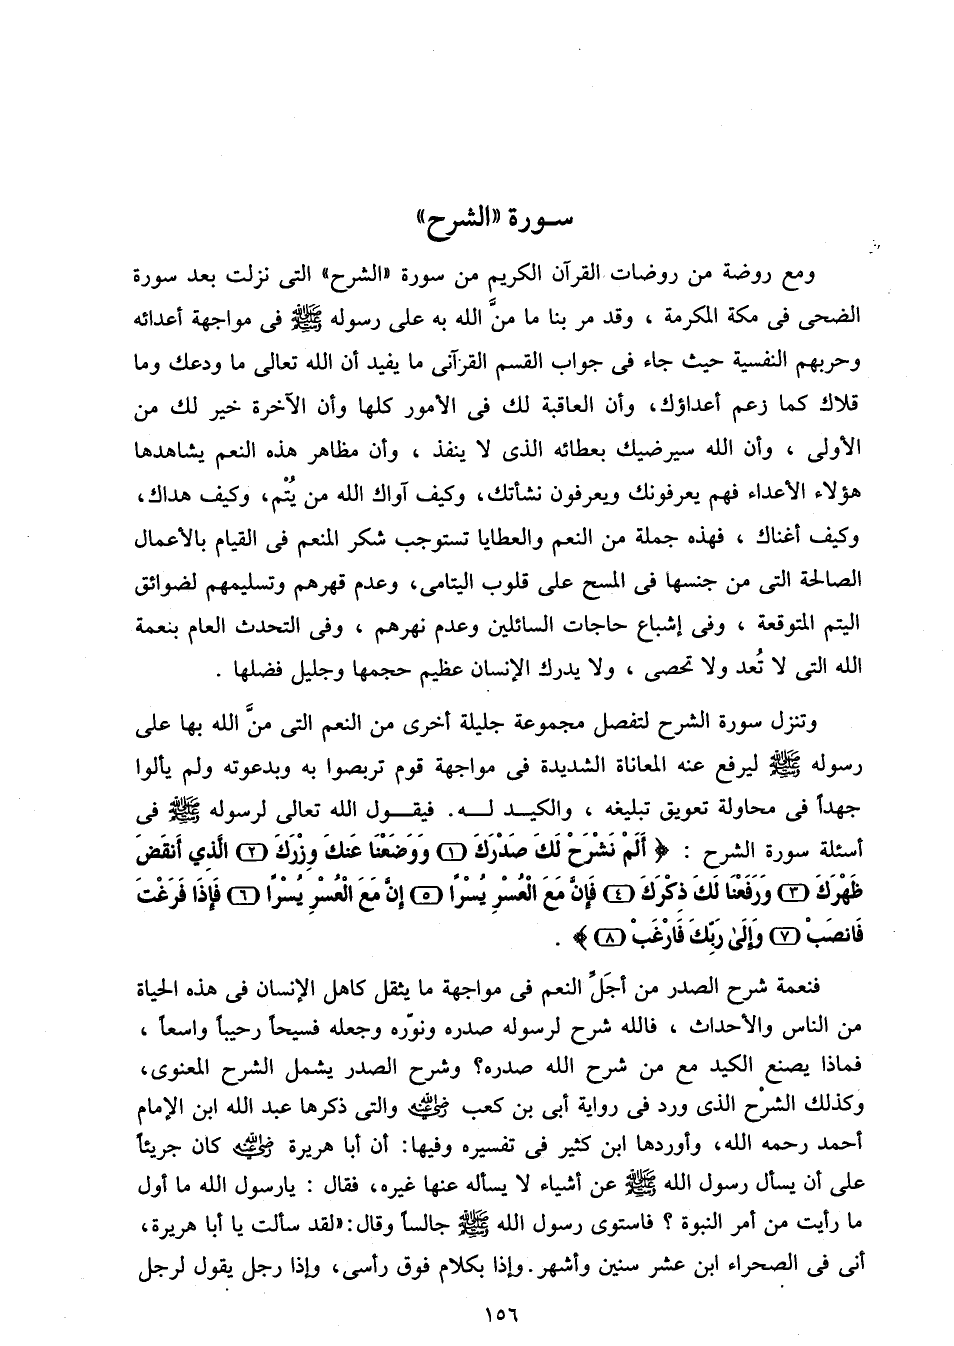 سورة «الشرح»
ومع روضة من روضات القرآن الكريم من سورة «الشرح» التى نزلت بعد سورة
الضحى فى مكة المكرمة ، وقد مر بنا ما منَّ الله به على رسوله ﷺ فى مواجهة أعدائه
وحربهم النفسية حيث جاء فى جواب القسم القرآنى ما يفيد أن الله تعالى ما ودعك وما
قلاك كما زعم أعداؤك، وأن العاقبة لك فى الأمور كلها وأن الآخرة خير لك من
الأولى ، وأن الله سيرضيك بعطائه الذى لا ينفذ ، وأن مظاهر هذه النعم يشاهدها
هؤلاء الأعداء فهم يعرفونك ويعرفون نشأتك، وكيف آواك الله من يُتْم، وكيف هداك،
وكيف أغناك ، فهذه جملة من النعم والعطايا تستوجب شكر المنعم فى القيام بالأعمال
الصالحة التى من جنسها فى المسح على قلوب اليتامى، وعدم قهرهم وتسليمهم لضوائق
اليتم المتوقعة ، وفى إشباع حاجات السائلين وعدم نهرهم ، وفى التحدث العام بنعمة
الله التى لا تُعد ولا تحصى ، ولا يدرك الإنسان عظيم حجمها وجليل فضلها .
وتنزل سورة الشرح لتفصل مجموعة جليلة أخرى من النعم التى منَّ الله بها على
رسوله ﷺ ليرفع عنه المعاناة الشديدة فى مواجهة قوم تربصوا به وبدعوته ولم يألوا
جهداً فى محاولة تعويق تبليغه ، والكيد لـه. فيقـول الله تعالى لرسوله ﷺ فى
أسئلة سورة الشرح : ﴿ أَلَمْ نَشْرَحْ لَكَ صَدْرَكَ (١) وَوَضَعْنَا عَنكَ وِزْرَكَ (٢) الَّذِي أَنقَضَ
ظَهْرَكَ (٣) وَرَفَعْنَا لَكَ ذِكْرَكَ (٤) فَإِنَّ مَعَ الْعُسْرِ يُسْرًا (٥) إِنَّ مَعَ الْعُسْرِ يُسْرًا (٦) فَإِذَا فَرَغْتَ
فَانصَبْ (٧) وَإِلَىٰ رَبِّكَ فَارْغَبْ (٨) ﴾ .
فنعمة شرح الصدر من أجَلِّ النعم فى مواجهة ما يثقل كاهل الإنسان فى هذه الحياة
من الناس والأحداث ، فالله شرح لرسوله صدره ونوّره وجعله فسيحاً رحيباً واسعاً ،
فماذا يصنع الكيد مع من شرح الله صدره؟ وشرح الصدر يشمل الشرح المعنوى،
وكذلك الشرْح الذى ورد فى رواية أبى بن كعب رضي الله عنه والتى ذكرها عبد الله ابن الإمام
أحمد رحمه الله، وأوردها ابن كثير فى تفسيره وفيها: أن أبا هريرة رضي الله عنه كان جريئاً
على أن يسأل رسول الله ﷺ عن أشياء لا يسأله عنها غيره، فقال : يارسول الله ما أول
ما رأيت من أمر النبوة ؟ فاستوى رسول الله ﷺ جالساً وقال: «لقد سألت يا أبا هريرة،
أنى فى الصحراء ابن عشر سنين وأشهر. وإذا بكلام فوق رأسى، وإذا رجل يقول لرجل
١٥٦